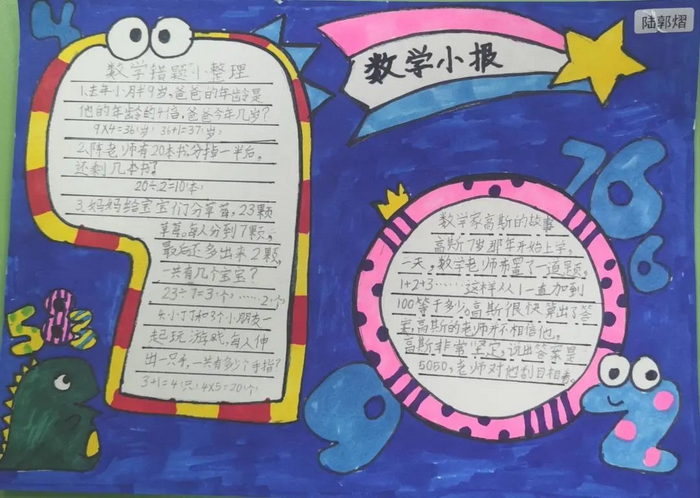 陆郭熠
数学小报
数学错题小整理
1.去年小月半9岁,爸爸的年龄是
他的年龄的4倍,爸爸今年几岁?
9×4=36(岁) 36+1=37(岁)
2.陈老师有20本书,分掉一半后。
还剩几本书?
20÷2=10(本)
3.妈妈给宝宝们分草莓,23颗
草莓。每人分到7颗,
最后还多出来2颗,
一共有几个宝宝?
23÷7=3(个)……2(个)
4.小丁和3个小朋友一
起玩游戏,每人伸
出一只手,一共有多少个手指?
3+1=4(只) 4×5=20(个)
数学家高斯的故事
高斯7岁那年开始上学。
一天,数学老师布置了一道题。
1+2+3……这样从1一直加到
100等于多少。高斯很快算出了答
案,高斯的老师并不相信他。
高斯非常坚定,说出答案是
5050,老师对他刮目相看。
4
5
8
2
9
7
6
6
2